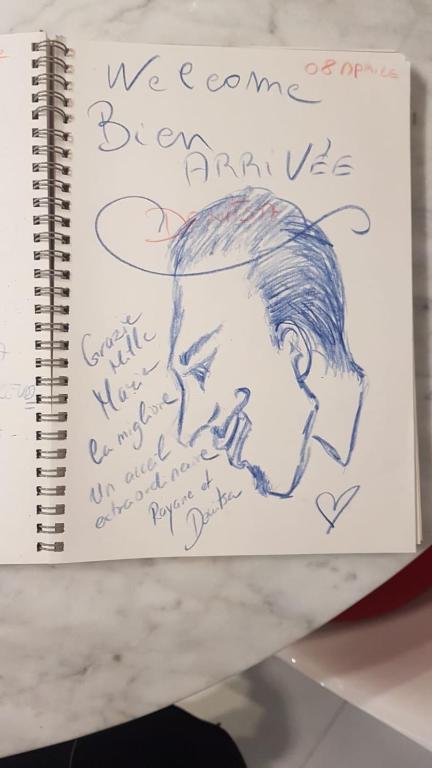 08 APRILE
Welcome
Bien
ARRIVÉE
Grazie
Mille
Maria
la migliore
Un accueil
extraordinaire
Rayane et